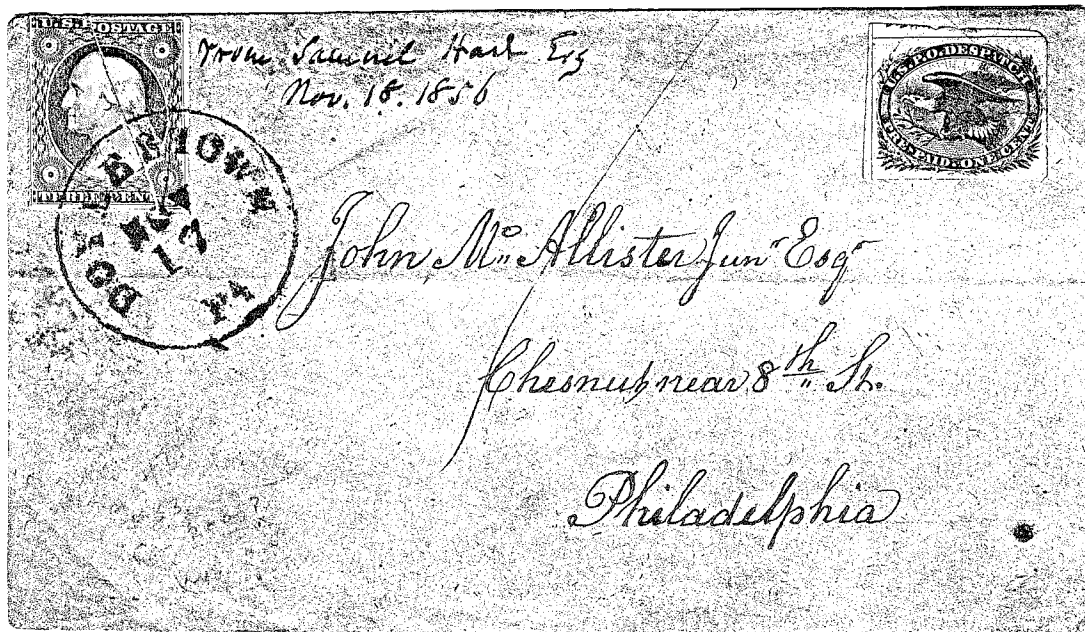 U.S. POSTAGE
THREE CENTS
From Samuel Hart Esq
Nov. 18. 1856
U.S.P.O. DESPATCH
PRE-PAID ONE CENT
DOYLESTOWN
NOV
17
PA
John Mc Allister Junr Esqr
Chesnut, near 8th St.
Philadelphia